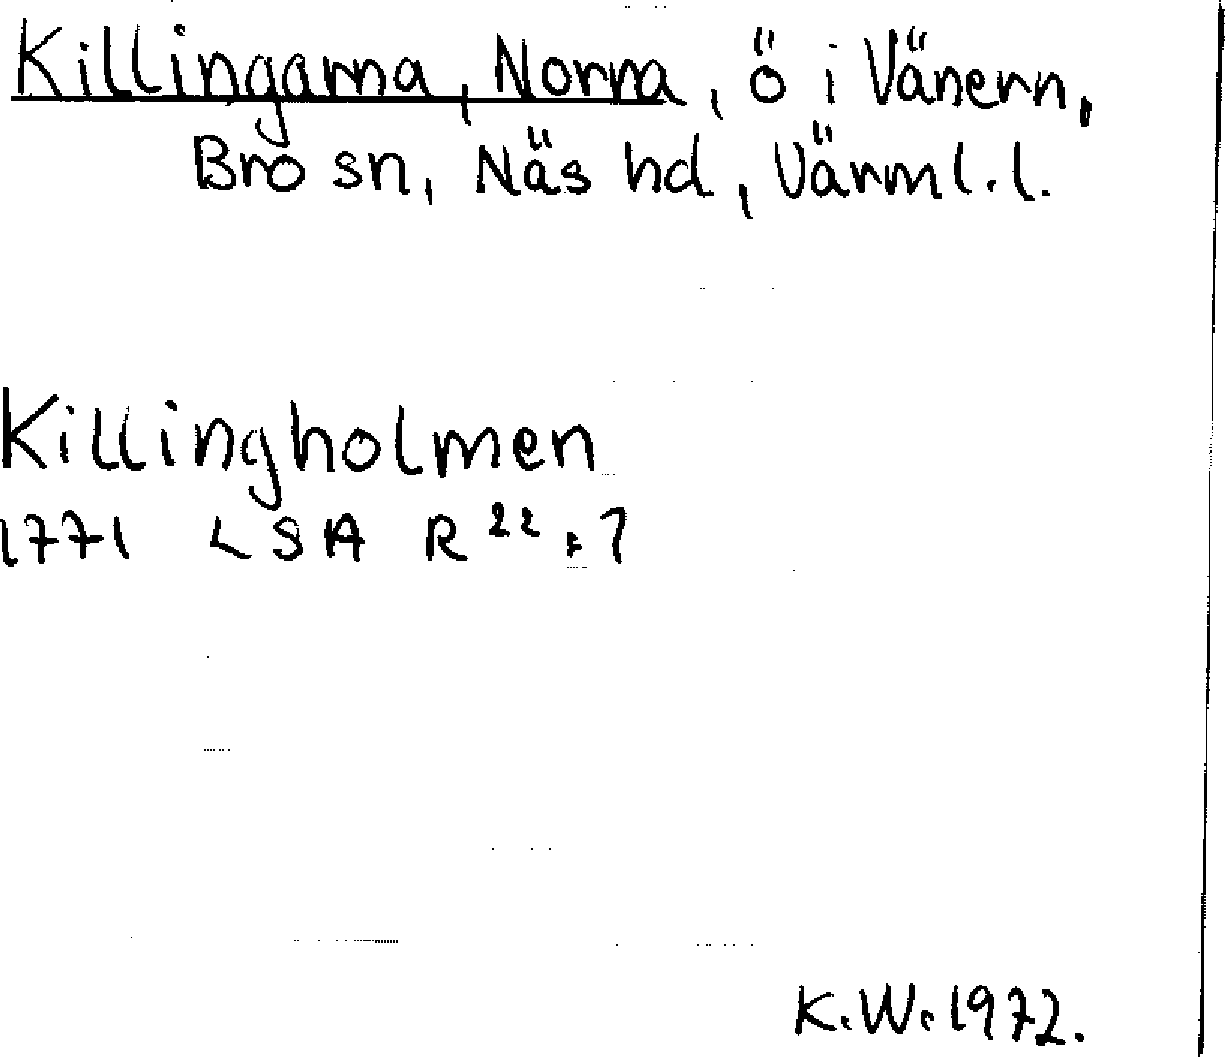 Killingarna, Norra, ö i Vänern,
Bro sn, Näs hd, Värml.l.
Killingholmen
1771 LSA R 22:7
K.W. 1972.